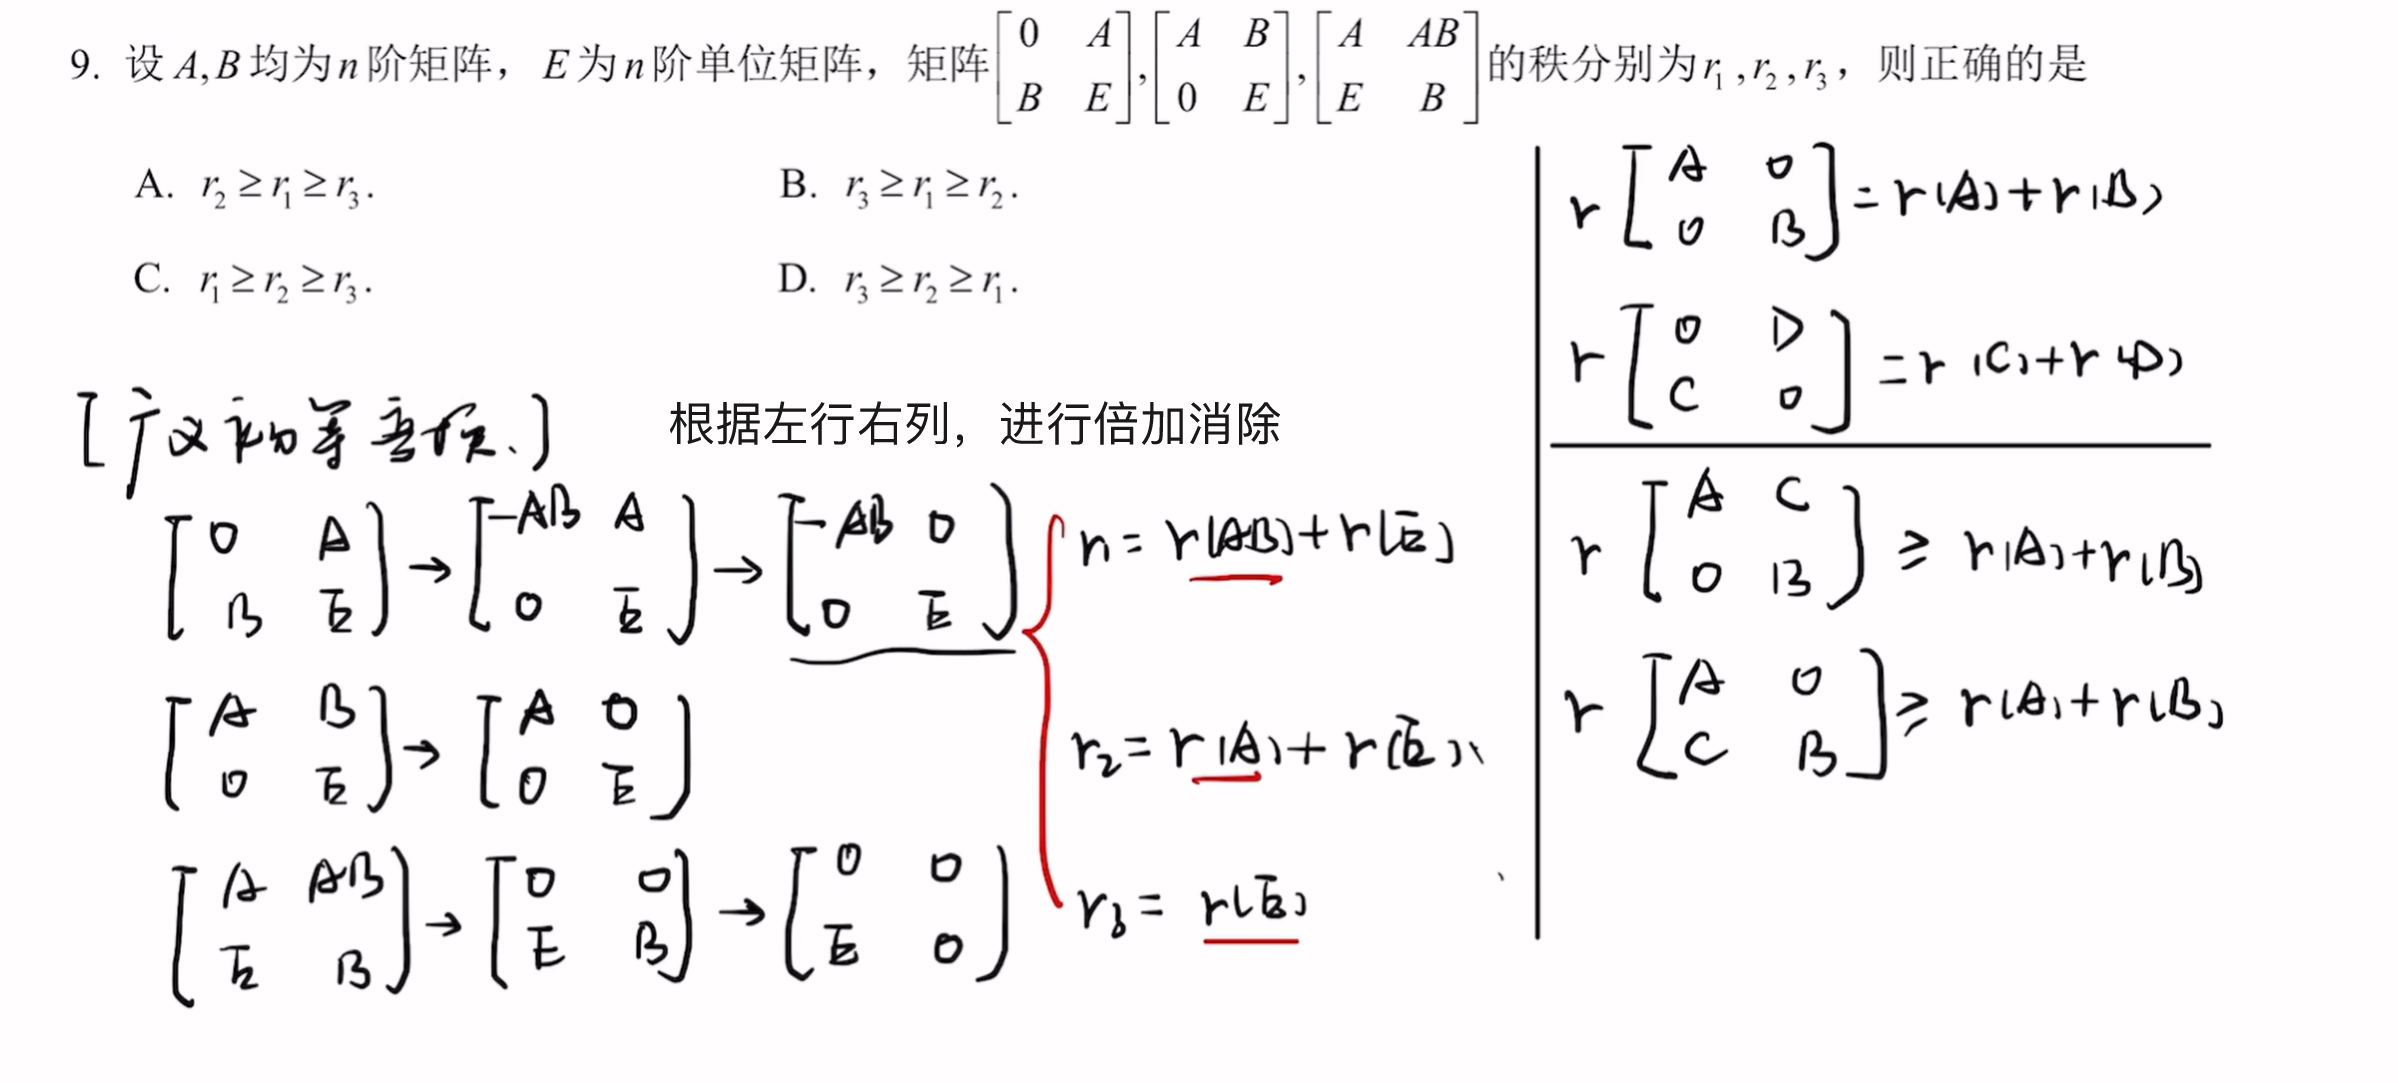 9. 设 A,B 均为 n 阶矩阵，E 为 n 阶单位矩阵，矩阵 [0 A; B E], [A B; 0 E], [A AB; E B] 的秩分别为 r₁, r₂, r₃，则正确的是
A. r₂ ≥ r₁ ≥ r₃.
B. r₃ ≥ r₁ ≥ r₂.
C. r₁ ≥ r₂ ≥ r₃.
D. r₃ ≥ r₂ ≥ r₁.
[广义初等变换.]
根据左行右列，进行倍加消除
[0 A; B E] → [-AB A; 0 E] → [-AB 0; 0 E]
r₁ = r(AB) + r(E)
[A B; 0 E] → [A 0; 0 E]
r₂ = r(A) + r(E)
[A AB; E B] → [0 0; E B] → [0 0; E 0]
r₃ = r(E)
r [A 0; 0 B] = r(A) + r(B)
r [0 D; C 0] = r(C) + r(D)
r [A C; 0 B] ≥ r(A) + r(B)
r [A 0; C B] ≥ r(A) + r(B)